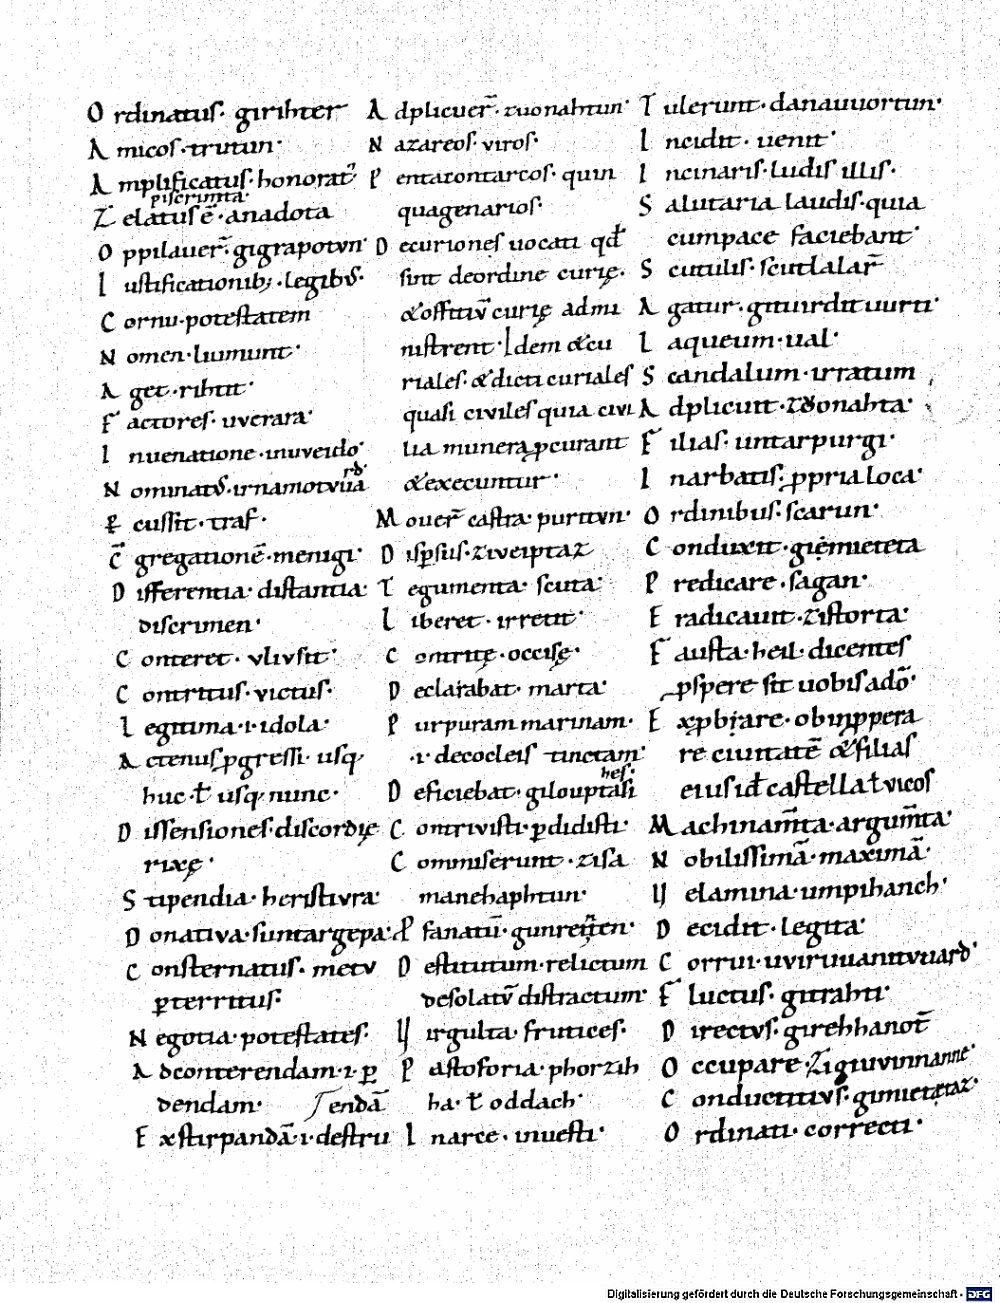 Ordinatuſ. girihter
Amicoſ. trutun·
Amplificatuſ. honorat᷒
piſcrimta.
Zelatuſ ē. anadota
Oppilauer̄. gigrapotvn·
Iuſtificationib; . legibꝰ.
Cornu. poteſtatem
Nomen. liumunt·
Aget. ribtit·
Factoreſ. uverara·
Inuenatione. inuveido·
Nominatꝰ. irnamotvu̇a
rd·
ꝑcuſſit. traf·
C̄gregationē. menigi·
Differentia. diſtantia·
diſcrimen·
Conteret. vlivſit·
Contrituſ. victuſ.
Legitima. i. idola·
Actenuſ ꝓgreſſi. uſq·
huc. ł uſq· nunc.
Diſſenſioneſ. diſcordię
rixę·
Stipendia. heriſtivra·
Donativa. ſuntargepa·
Conſternatuſ. metv
ꝑterrituſ:
Negotia. poteſtateſ.
Adconterendam. i. ꝑ
dendam· ſendā
Exſtirpandā. i. deſtru
Adplicuer̄. zuonahtun·
Nazareoſ. viroſ.
Pentatontarcoſ. quin
quagenarioſ.
Decurioneſ uocati qđ
ſint deordine curię.
&offitiv̄ curię admi
niſtrent. Idem &cu
rialeſ. &dicti curialeſ
quaſi civileſ quia civi
lia munera ꝓcurant
&executntur·
Mouer̄ caſtra. puritvn·
Diſꝑſuſ. ziveiptaz
Tegumenta. ſcuta·
Liberet. irretit·
Contritę. occiſę·
Declarabat. marta·
Purpuram marinam.
·i. decocleiſ tinctam·
heſ·
Deficiebat. gilouptaſi
Contriviſti. ꝑdidiſti·
Commiſerunt. ziſa
manehaphtun·
Pfanatū. gunreinten·
Deſtitutum. relictum
deſolatv̄ diſtractum·
Virgulta. fruticeſ.
Paſtoforia. phorzih
ha. ł oddach·
Inarce. inueſti·
Tulerunt. danauuortun·
Incidit. uenit·
Incinariſ. ludiſ illiſ.
Salutaria laudiſ. quia
cumpace faciebant·
Scutuliſ. ſcutlalar̄
Agatur. gituirdit uurti·
Laqueum. ual·
Scandalum. irratum
Adplicuit. zuonahta·
Filiaſ. untarpurgi·
Inarbatiſ. ꝓpria loca·
Ordinibuſ. ſcarun·
Conduxit. giemieteta
Predicare. ſagan·
Eradicauit. ziſtorta·
Fauſta. heil. dicenteſ
ꝓſpere ſit uobiſ adō·
Exꝓbrare. obinꝓpera
re ciuitatē &filiaſ
eiuſ iđ caſtella ł vicoſ
Machinam̄ta. argum̄ta·
Nobiliſſimā. maximā·
Velamina. umpihanch·
Decidit. legita·
Corrui. uviruuanttvuard·
Fluctuſ. gitrahti·
Directvſ. girehhanot̄
Occupare. zigiuvinnanne·
Conductitivſ. gimietetaz·
Ordinati. correcti.
Digitalisierung gefördert durch die Deutsche Forschungsgemeinschaft - DFG